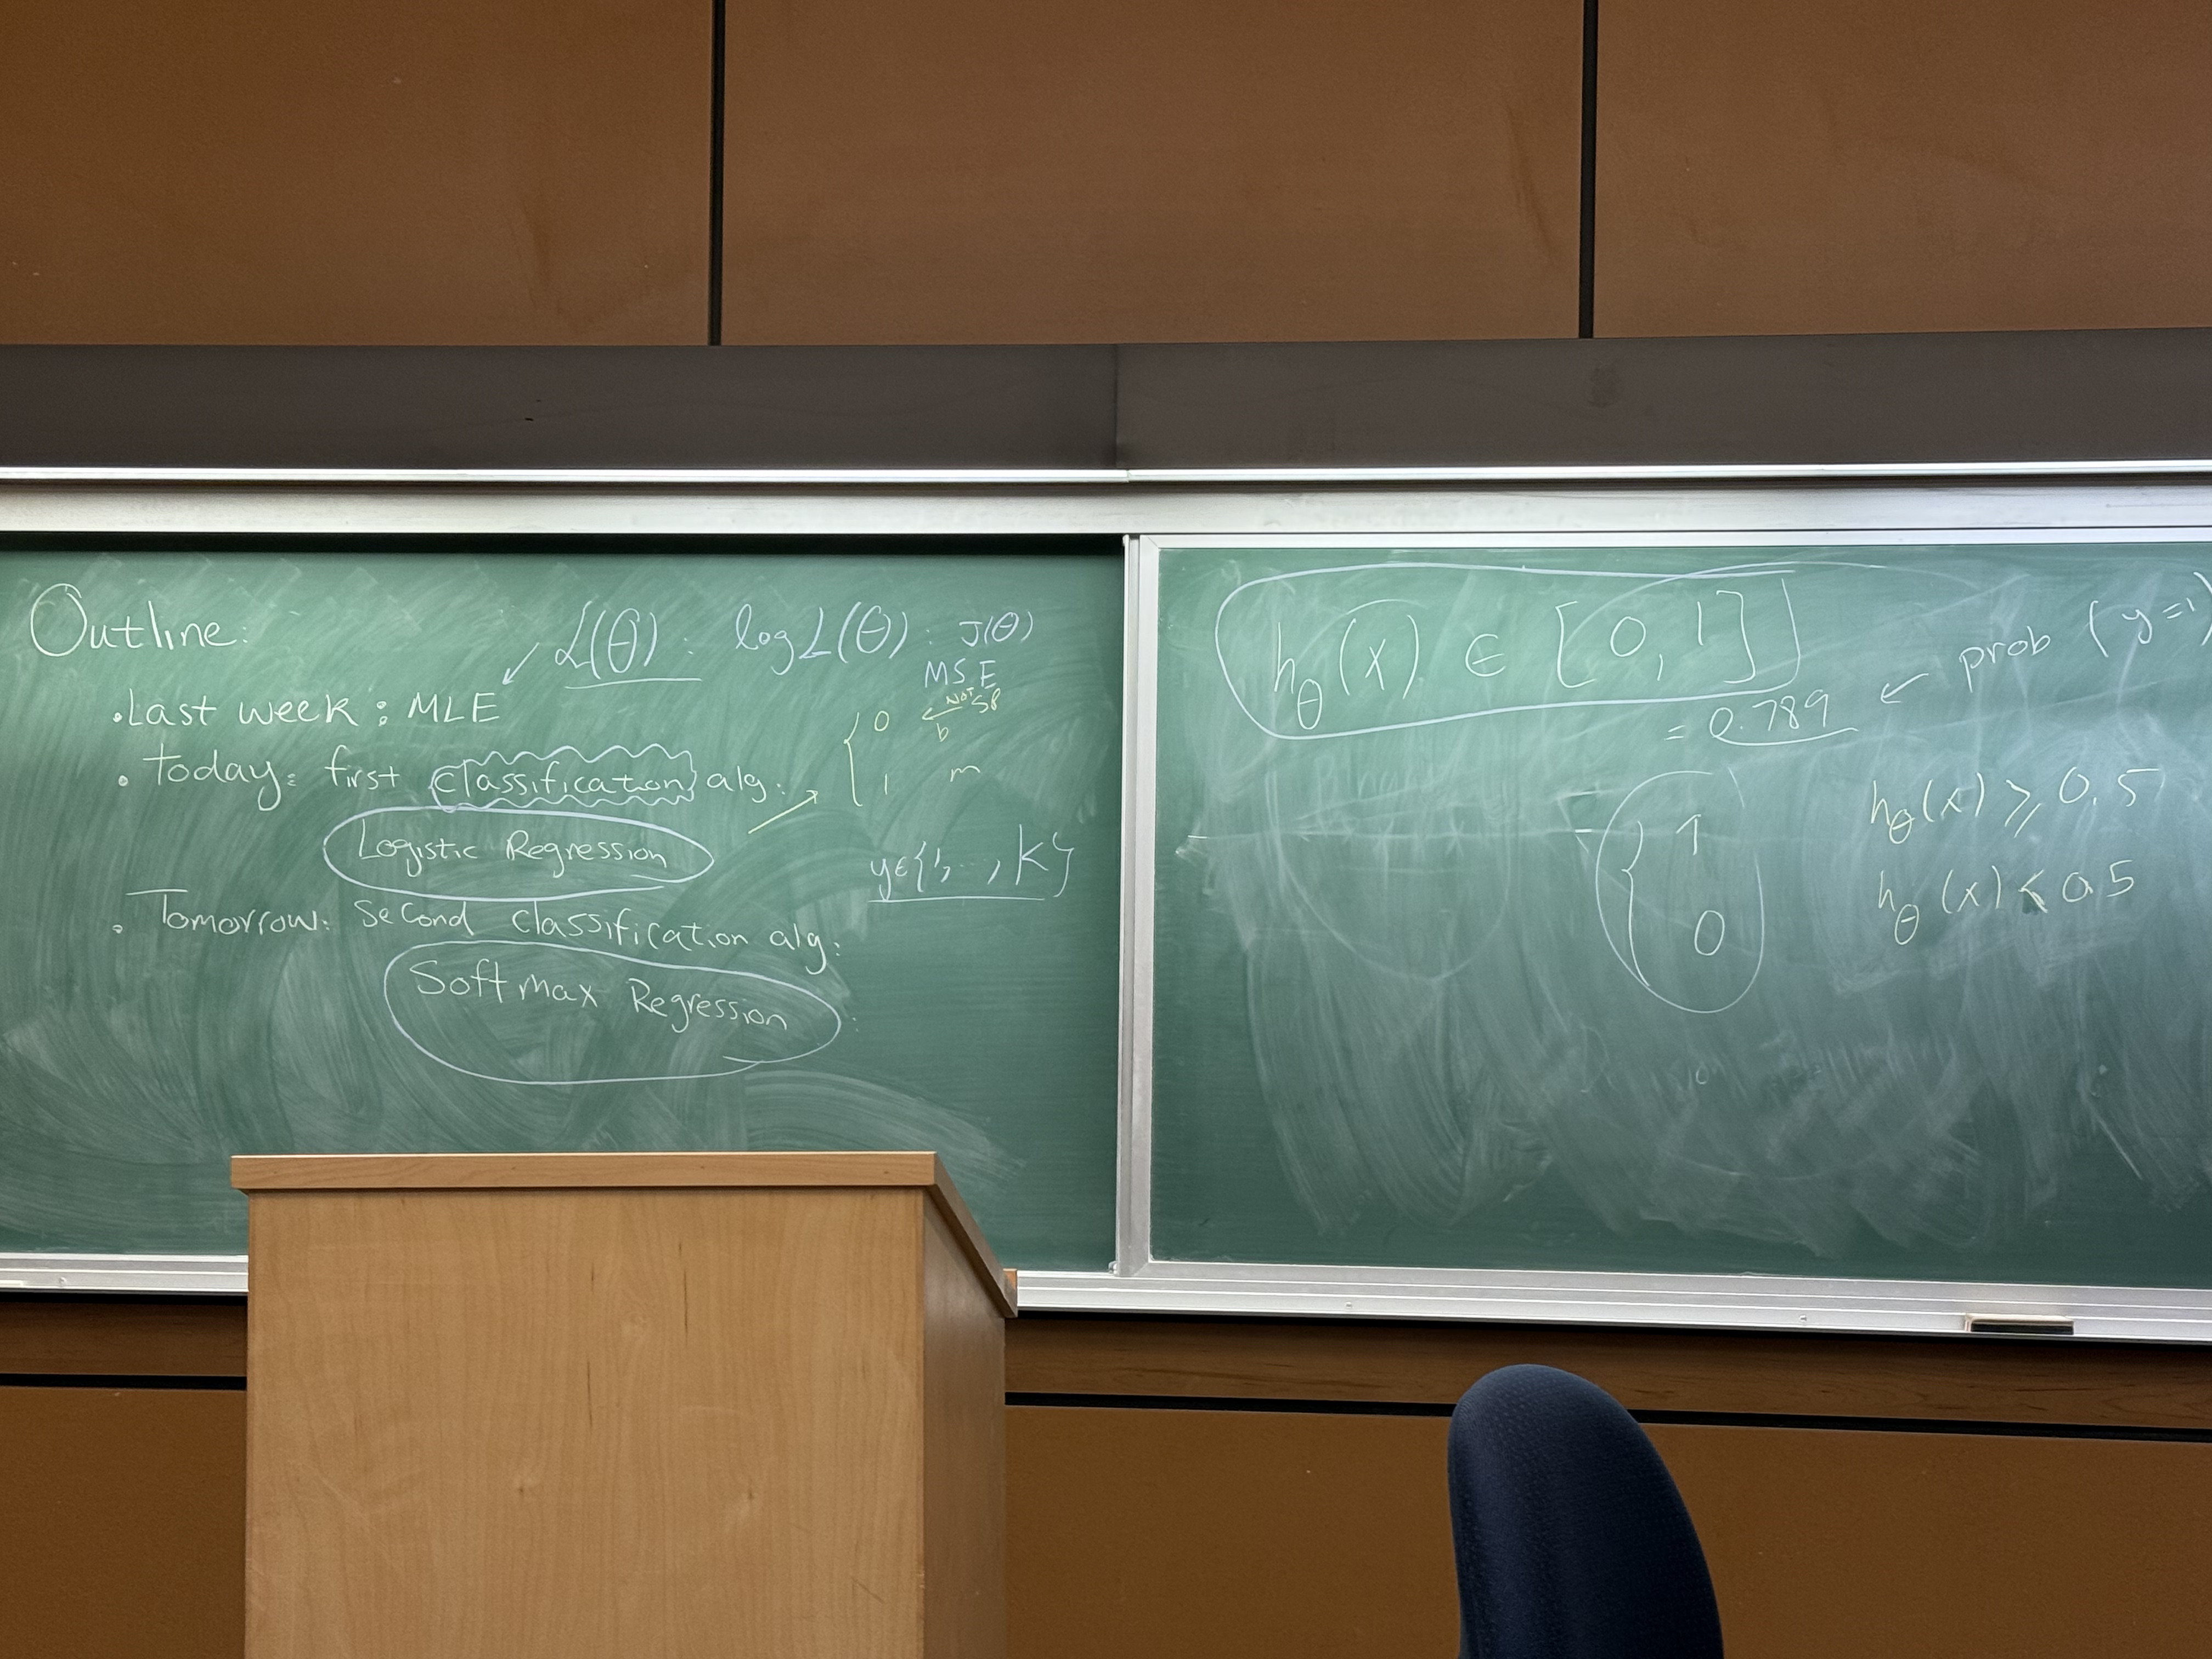 Outline:
L(θ) : log L(θ) : J(θ)
MSE
• Last week : MLE
{ 0 b
NOT
• today: first classification alg:
1 m
Logistic Regression
y∈{1,..., K}
• Tomorrow: Second classification alg:
Softmax Regression
hθ(x) ∈ [0, 1]
= 0.789
prob (y=1)
{ 1 hθ(x) ⩾ 0.5
0 hθ(x) < 0.5